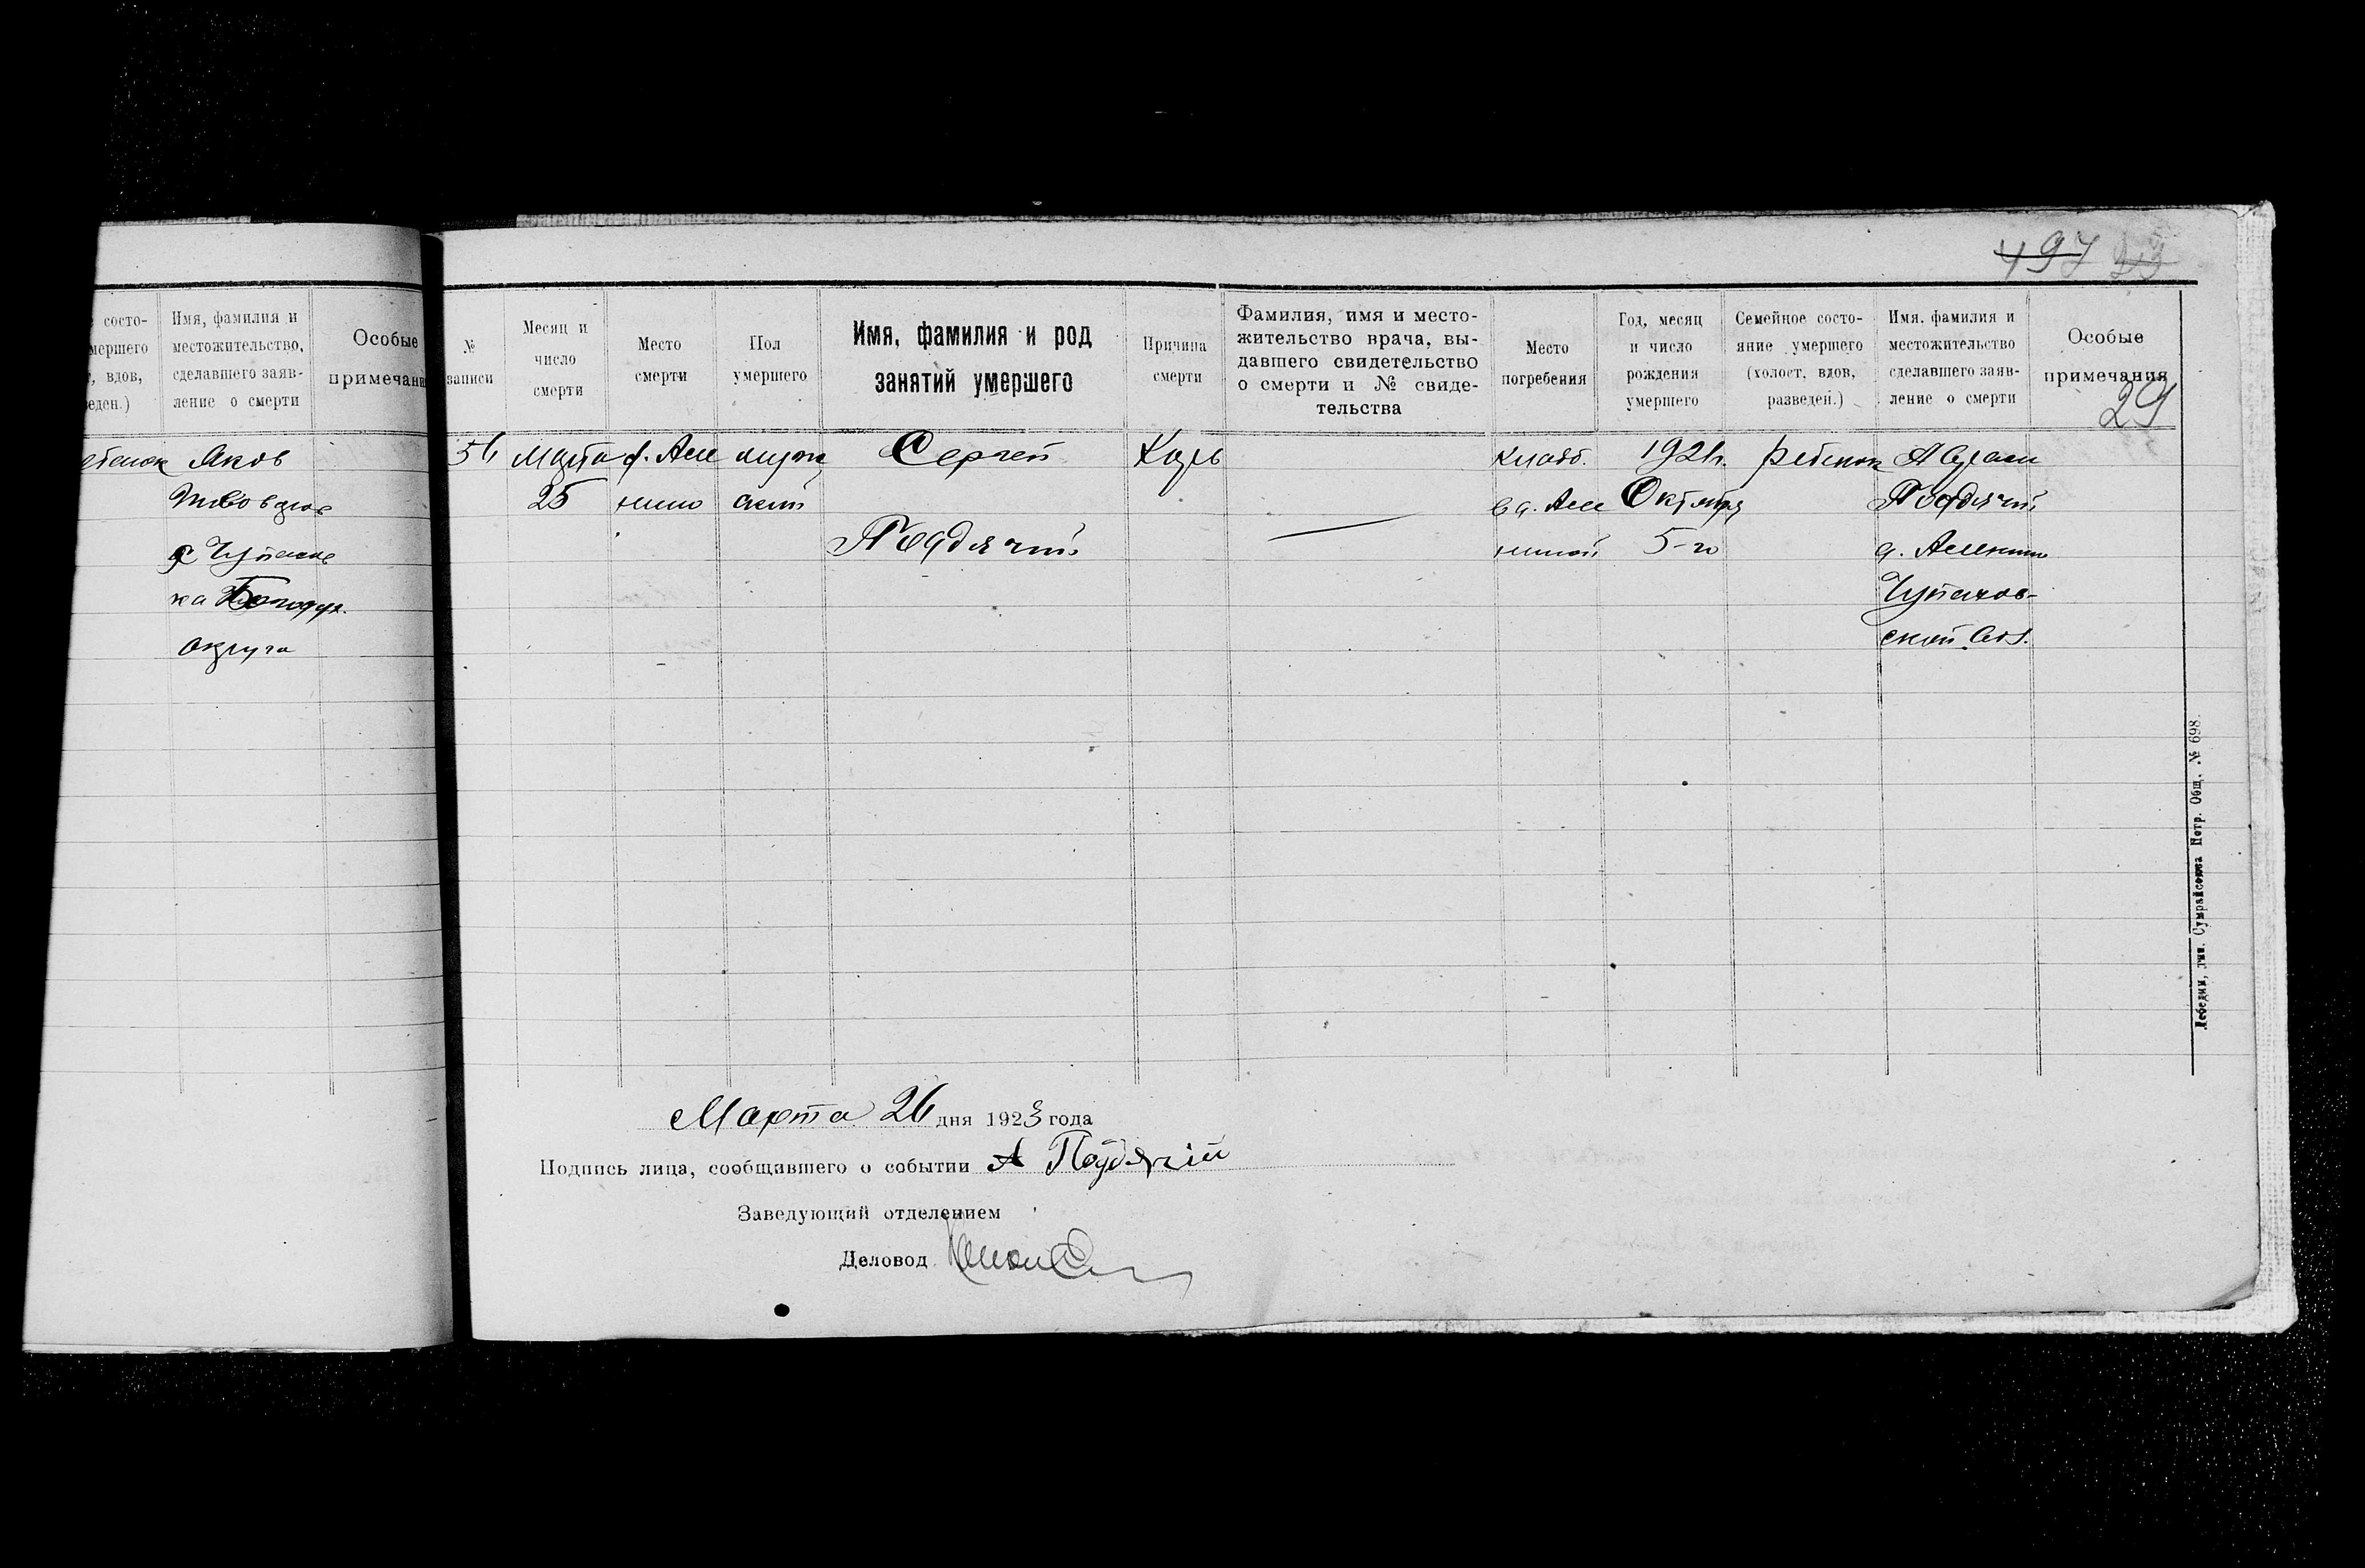 497 23
состо-
мершего
, вдов,
еден.)
Имя, фамилия и
местожительство,
сделавшего заяв-
ление о смерти
Особые
примечани
Яков
округа
№
записи
Месяц и
число
смерти
Место
смерти
Пол
умершего
Имя, фамилия и род
занятий умершего
Причина
смерти
Фамилия, имя и место-
жительство врача, вы-
давшего свидетельство
о смерти и № свиде-
тельства
Место
погребения
Год, месяц
и число
рождения
умершего
Семейное состо-
яние умершего
(холост, вдов,
разведен.)
Имя, фамилия и
местожительство
сделавшего заяв-
ление о смерти
Особые
примечания
29
56
Марта
25
муж
ский
Сергей
Поддячий
Корь
кладб.
1921г.
Октября
5-го
ребенок
Абрам
Поддячий
Чупахов-
ской
Марта 26 дня 1923 года
Подпись лица, сообщавшего о событии А Поддячій
Заведующий отделением
Деловод
Петр. Общ. № 698.